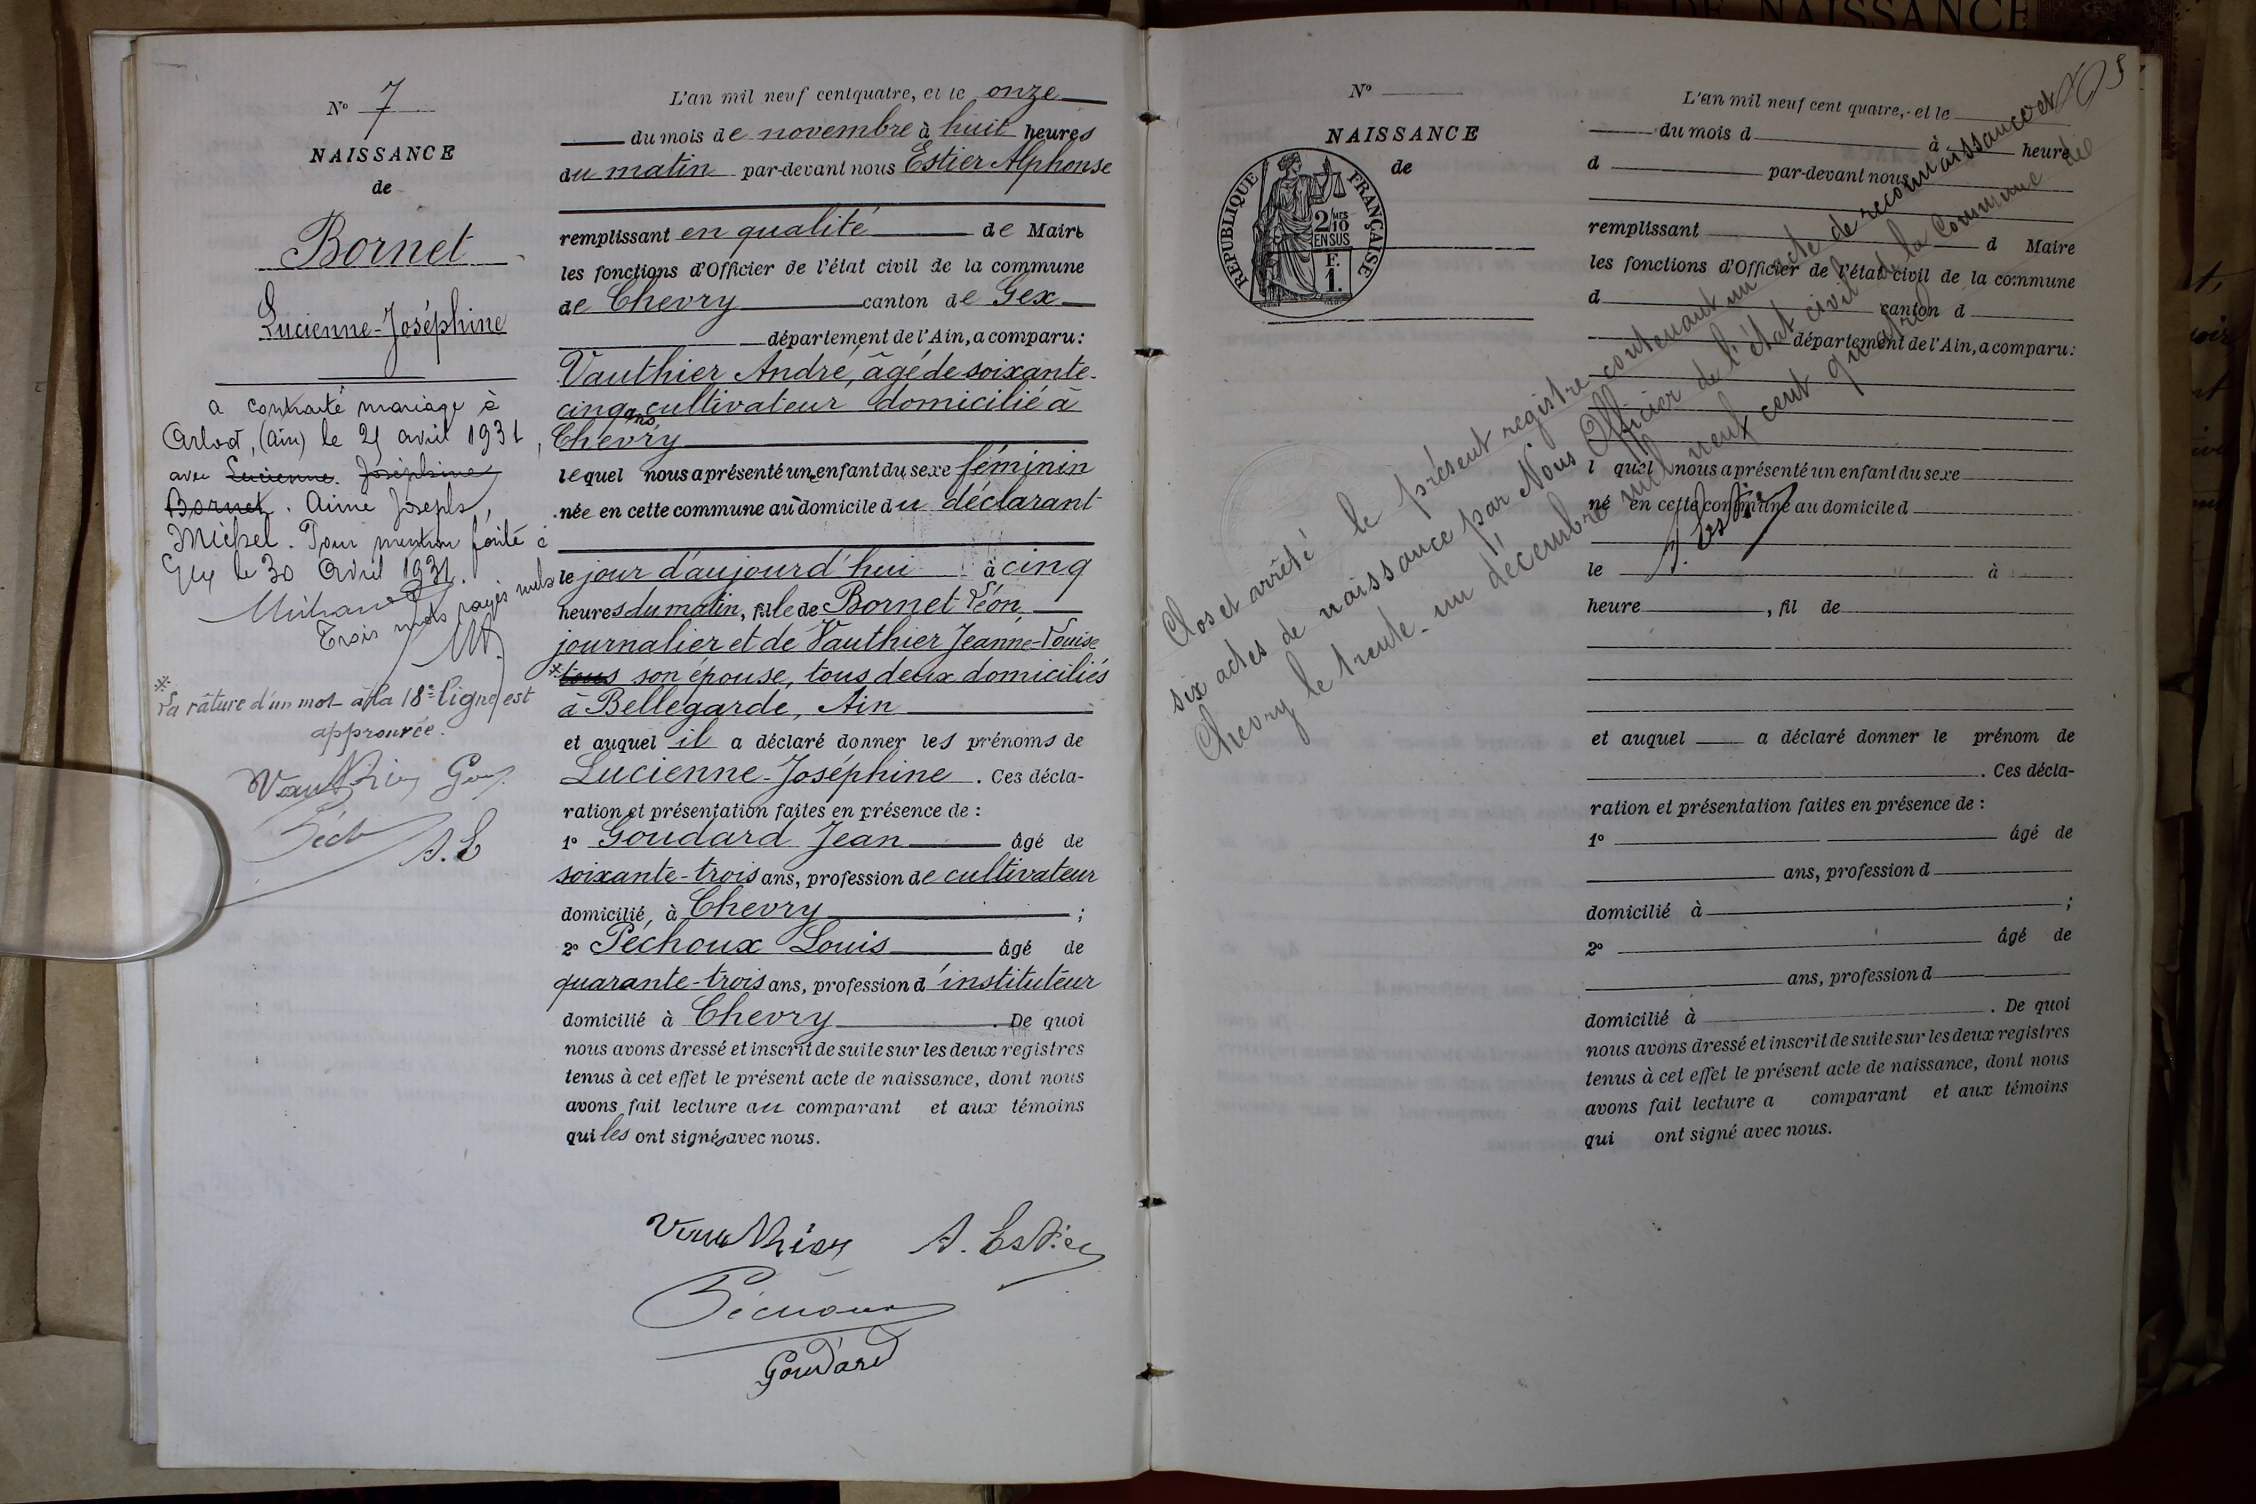 ACTE DE NAISSANCE
Nº 7
NAISSANCE
de
Bornet
Lucienne-Joséphine
a contracté mariage à
Arlod, (Ain) le 25 avril 1931,
avec Lucienne Joséphine
Bornet. Aimé Joseph,
Michel. Pour mention faite à
Gex le 30 Avril 1931.
Trois mots rayés nuls
* La râture d'un mot à la 18e ligne est
approuvée.
Vauthier Gou.
Péch A.E
L'an mil neuf cent quatre, et le onze
du mois de novembre à huit heures
du matin par-devant nous Estier Alphonse
remplissant en qualité de Maire
les fonctions d'Officier de l'état civil de la commune
de Chevry canton de Gex
département de l'Ain, a comparu:
Vauthier André, âgé de soixante-
cinq ans, cultivateur domicilié à
Chevry
lequel nous a présenté un enfant du sexe féminin
née en cette commune au domicile du déclarant
le jour d'aujourd'hui à cinq
heures du matin, fille de Bornet Léon
journalier et de Vauthier Jeanne-Louise
* tous son épouse, tous deux domiciliés
à Bellegarde, Ain
et auquel il a déclaré donner les prénoms de
Lucienne-Joséphine. Ces décla-
ration et présentation faites en présence de :
1º Goudard Jean âgé de
soixante-trois ans, profession de cultivateur
domicilié, à Chevry ;
2º Péchoux Louis âgé de
quarante-trois ans, profession d'instituteur
domicilié à Chevry. De quoi
nous avons dressé et inscrit de suite sur les deux registres
tenus à cet effet le présent acte de naissance, dont nous
avons fait lecture au comparant et aux témoins
qui les ont signés avec nous.
Vauthier A. Estier
Péchoux
Goudard
Nº
NAISSANCE
de
RÉPUBLIQUE FRANÇAISE
2/10 EN SUS
F.
1.
L'an mil neuf cent quatre, et le
du mois d à heure
d par-devant nous
remplissant d Maire
les fonctions d'Officier de l'état civil de la commune
d canton d
département de l'Ain, a comparu:
l quel nous a présenté un enfant du sexe
né en cette commune au domicile d
le à
heure , fil de
et auquel a déclaré donner le prénom de
. Ces décla-
ration et présentation faites en présence de :
1º âgé de
ans, profession d
domicilié à ;
2º âgé de
ans, profession d
domicilié à . De quoi
nous avons dressé et inscrit de suite sur les deux registres
tenus à cet effet le présent acte de naissance, dont nous
avons fait lecture a comparant et aux témoins
qui ont signé avec nous.
Clos et arrêté le présent registre contenant un acte de reconnaissance et
six actes de naissance par Nous Officier de l'état civil de la Commune de
Chevry le trente-un décembre mil neuf cent quatre
A. Estier